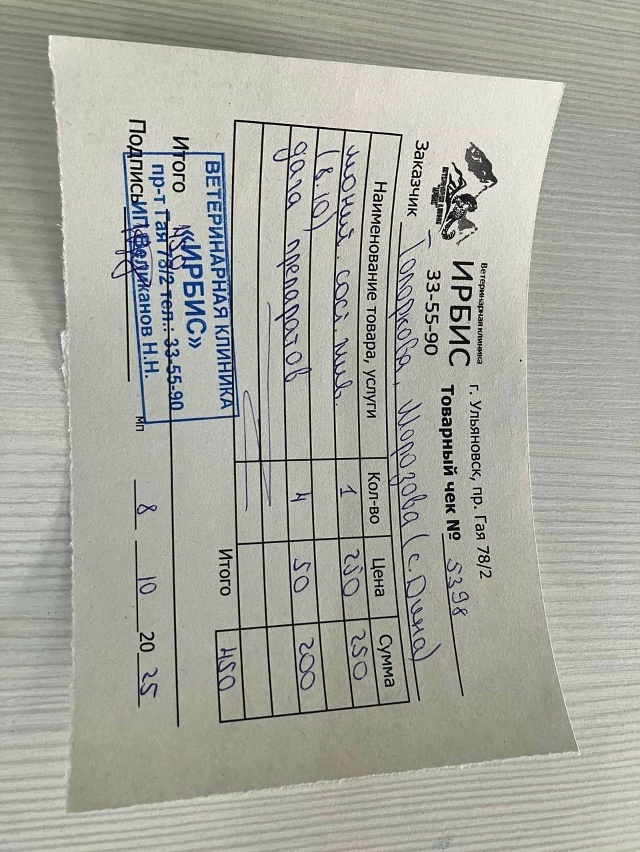 Ветеринарная клиника
ИРБИС
33-55-90
г. Ульяновск, пр. Гая 78/2
Товарный чек № 5398
Заказчик Топоркова, Морозова (с. Дина)
Наименование товара, услуги Кол-во Цена Сумма
сост. 1 250 250
(8.10)
дача препаратов 4 50 200
Итого 450
Итого 450
Подпись
МП 8 10 2025
ВЕТЕРИНАРНАЯ КЛИНИКА
«ИРБИС»
пр-т Гая 78/2 тел.: 33-55-90
ИП Великанов Н.Н.